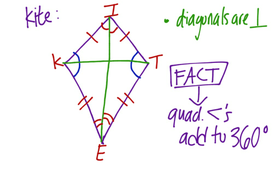 kite:
I
• diagonals are ⊥
K
T
FACT
quad. <'s
add to 360°
E